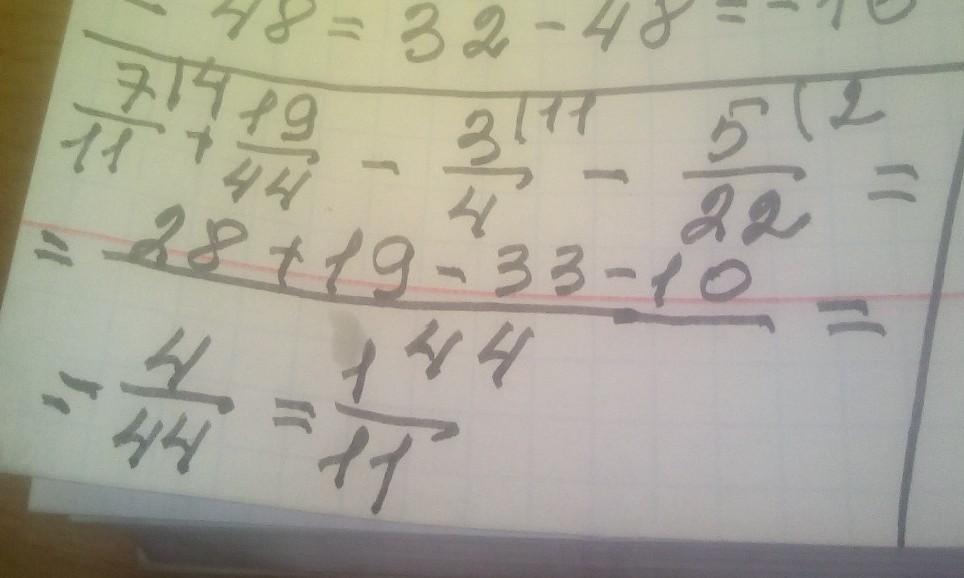 - 48 = 32 - 48 = - 16
7/11 (4 + 19/44 - 3/4 (11 - 5/22 (2 =
= 28 + 19 - 33 - 10 / 44 =
= 4/44 = 1/11